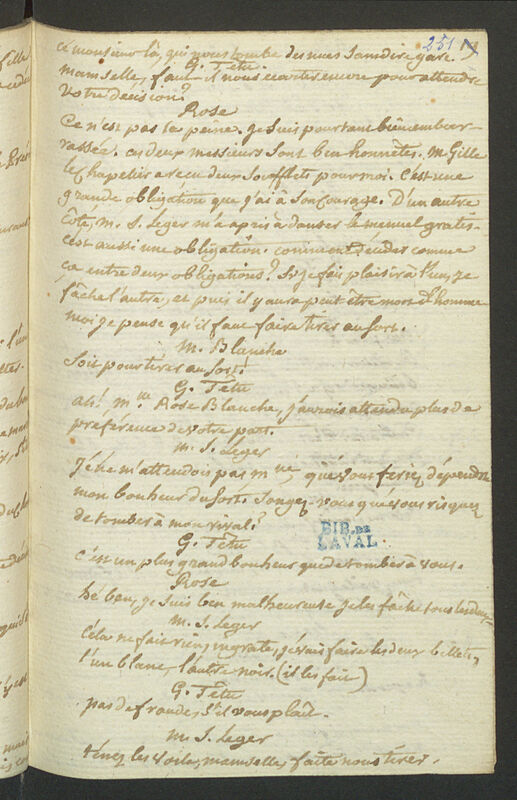 251
ce monsieur là, qui nous tombe des nues sans dire gare.
G. Têtu.
mamselle, faut-il nous écarter encore pour attendre
votre décision?
Rose
Ce n'est pas la peine. je suis pourtant bien embar-
rassée. ces deux messieurs sont ben honnêtes. m. Gille
le chapelier a reçu deux soufflets pour moi. c'est une
grande obligation que j'ai à son courage. D'un autre
côté, m. S. Leger m'a apris à danser le menuel gratis
c'est aussi une obligation. comment decider comme
ça entre deux obligations? Si je fais plaisir à l'un, je
fâche l'autre, et puis il y aura peut être mort d'homme
moi je pense qu'il faut faire tirer au sort.
M. Blanche
Soit pour tirer au sort!
G. Têtu
ah! m.lle Rose Blanche, j'aurois attendu plus de
préference de votre part.
m. S. Leger
je ne m'attendois pas que vous feriez dépendre
mon bonheur du sort. Songez-vous que vous risquez
de tomber à mon rival?
BIB. DE
LAVAL
G. Têtu
c'est un plus grand bonheur que de tomber à vous.
Rose
hé ben, je suis ben malheureuse je les fâche tous les deux
m. S. Leger
Cela ne fait rien, ingrate, je vais faire les deux billets,
l'un blanc, l'autre noir. (il les fait)
G. Têtu
pas de fraude, s'il vous plait.
m. S. Leger
tenez les voila, mamselle, faite nous tirer.